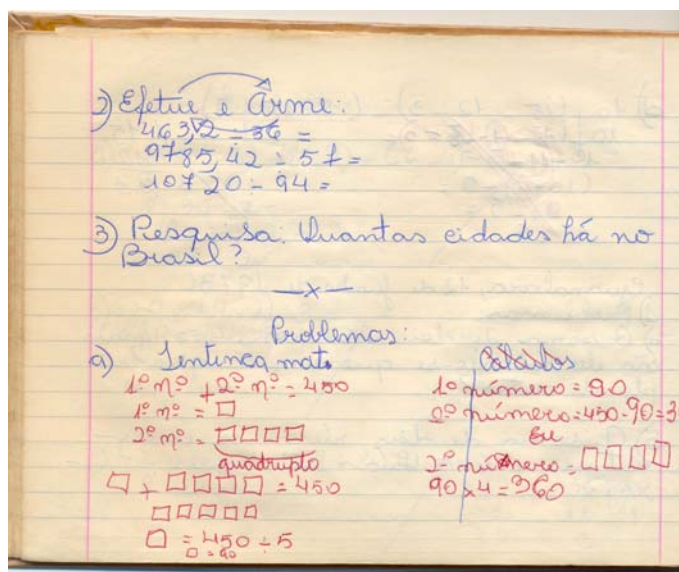 2) Efetue e Arme:
463,2 ÷ 36 =
9785,42 ÷ 57 =
10720 ÷ 94 =
3) Pesquisa: Quantas cidades há no
Brasil?
—x—
Problemas:
a) Sentença mat.
1º nº + 2º nº = 450
1º nº = □
2º nº = □□□□
quadruplo
□ + □□□□ = 450
□□□□□
□ = 450 ÷ 5
□ = 90
Cálculos
1º número = 90
2º número = 450 - 90 = 3
Ou
2º número = □□□□
90 x 4 = 360